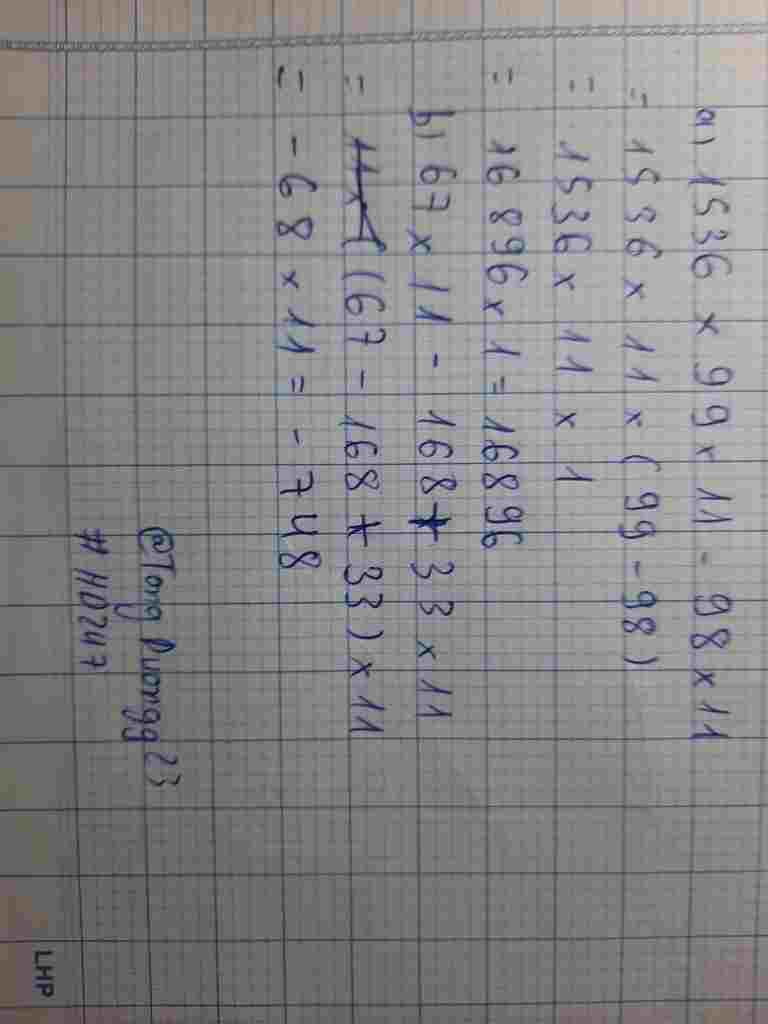 a) 1536 x 99 x 11 - 98 x 11
= 1536 x 11 x (99 - 98)
= 1536 x 11 x 1
= 16896 x 1 = 16896
b) 67 x 11 - 168 + 33 x 11
= (67 - 168 + 33) x 11
= -68 x 11 = -748
@Tong Duongg23
# HD247
LHP